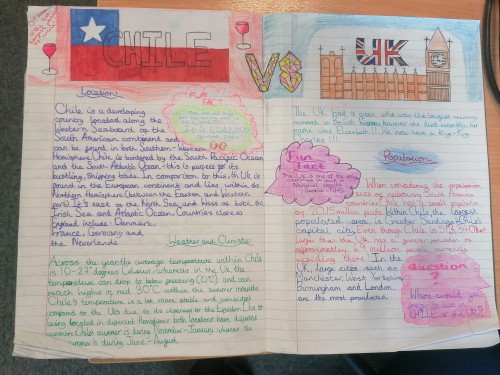 CHILE
VS
UK
Location
Chile is a developing
country located along the
Western Seaboard of the
South American continent and
can be found in both Southern-Western
Hemisphere. Chile is bordered by the South Pacific Ocean
and the South Atlantic Ocean - this is perfect for its
bustling, shipping trade. In comparison to this, the UK is
found in the European continent and lies within the
Northern Hemisphere (between the Eastern and Western
part). It's east of the North Sea and West of both the
Irish Sea and Atlantic Ocean. Countries close to
England include: Denmark,
France, Germany and
the Neverlands
Weather and Climate
Across the year, the average temperature within Chile
is 10-27 degrees Celsius whereas in the UK, the
temperature can drop to below freezing (0°C) and can
reach highs of mid 30°C within the summer months.
Chile's temperature is a lot more stable and
compared to the UKs due to its closeness to the Equator. Due to
being located in different hemispheres both locations have different
Chile summer is during November-January whereas the
summer is during June-August.
FUN
FACT!
The UK had a queen who was the longest reigning
monarch in British history however she died recently. Her
name was Elizabeth II. We now have a King - King
Charles III
Population
Fun
Fact
The UK is one of the only
countries to have a
National Health
Service (NHS)
When considering the population
size of surrounding South American
countries, Chile has a small population
of 20.15 million people. Within Chile the largest
populated area is Greater Santiago (Chile's
Capital city). Even though Chile is 513,540km²
larger than the UK has a greater population of
approximately 67 million people currently
residing there. In the
UK, large cities such as
Manchester, West Yorkshire,
Birmingham and London,
are the most populated.
Question
?
Where would you
prefer to live in
CHILE or the UK?